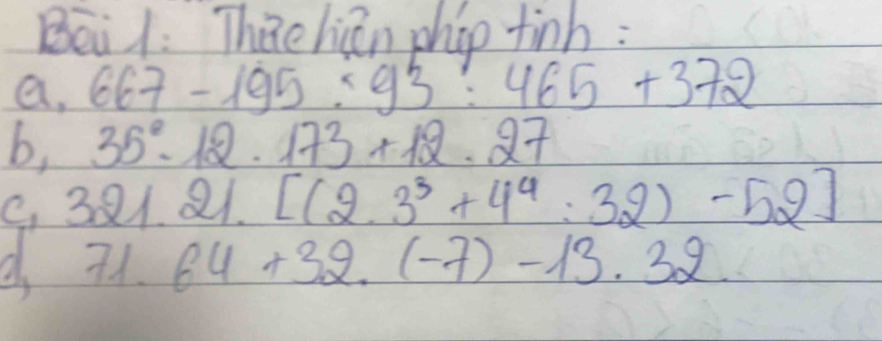 Bài 1: Thực hiện phép tính:
a, 667 - 195 : 93 : 465 + 372
b, 35⁰. 12. 173 + 12. 27
c, 321. 21. [(2. 3³ + 4⁴ : 32) - 52]
d, 71. 64 + 32. (-7) - 13. 32